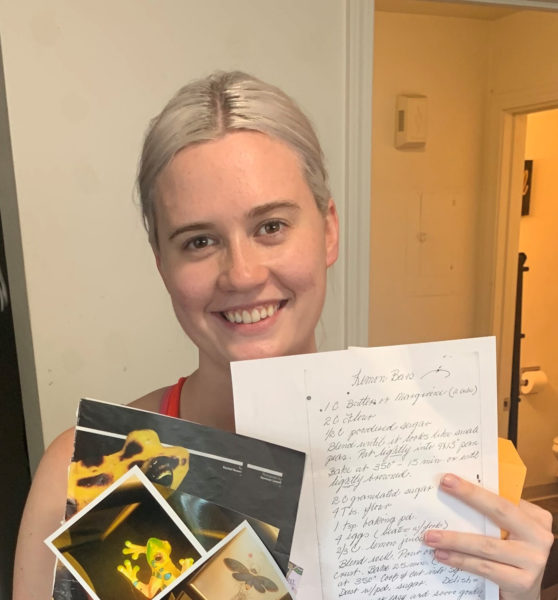 Lemon Bars
1 C Butter or Margarine (2 cubes)
2 C Flour
1/2 C powdered sugar
Blend until it looks like small
peas. Pat lightly into 9x13" pan
Bake at 350° - 15 min or until
lightly browned.
2 C granulated sugar
4 Tbs. flour
1 tsp baking pd.
4 eggs
2/3 C lemon juice
Blend well. Pour over
crust. Bake 25 min
at 350° Cool
Dust w/pd. sugar. Delish-
easy and serve